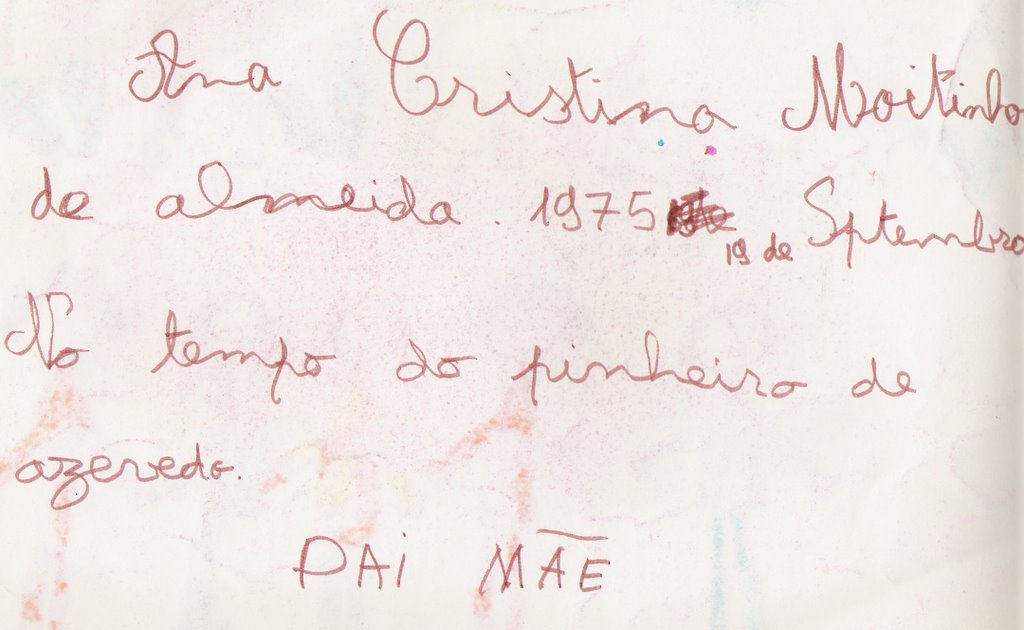 Ana Cristina Moitinho
de almeida. 1975 19 de Sptembro
No tempo do pinheiro de
azevedo.
PAi MÃE